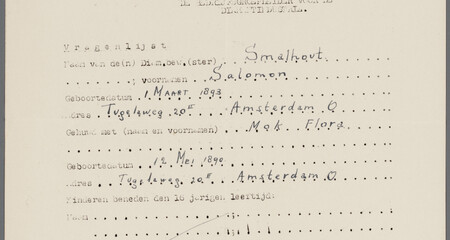 Vragenlijst
Naam van de(n) Dien.bew.(ster) Smalhout
; voornamen Salomon
Geboortedatum 1 Maart 1893
Adres Tugelaweg 20 II Amsterdam O
Gehuwd met (naam en voornamen) Mok Flora
Geboortedatum 12 Mei 1890
Adres Tugelaweg 20 II Amsterdam O
Kinderen beneden den 16 jarigen leeftijd:
Naam